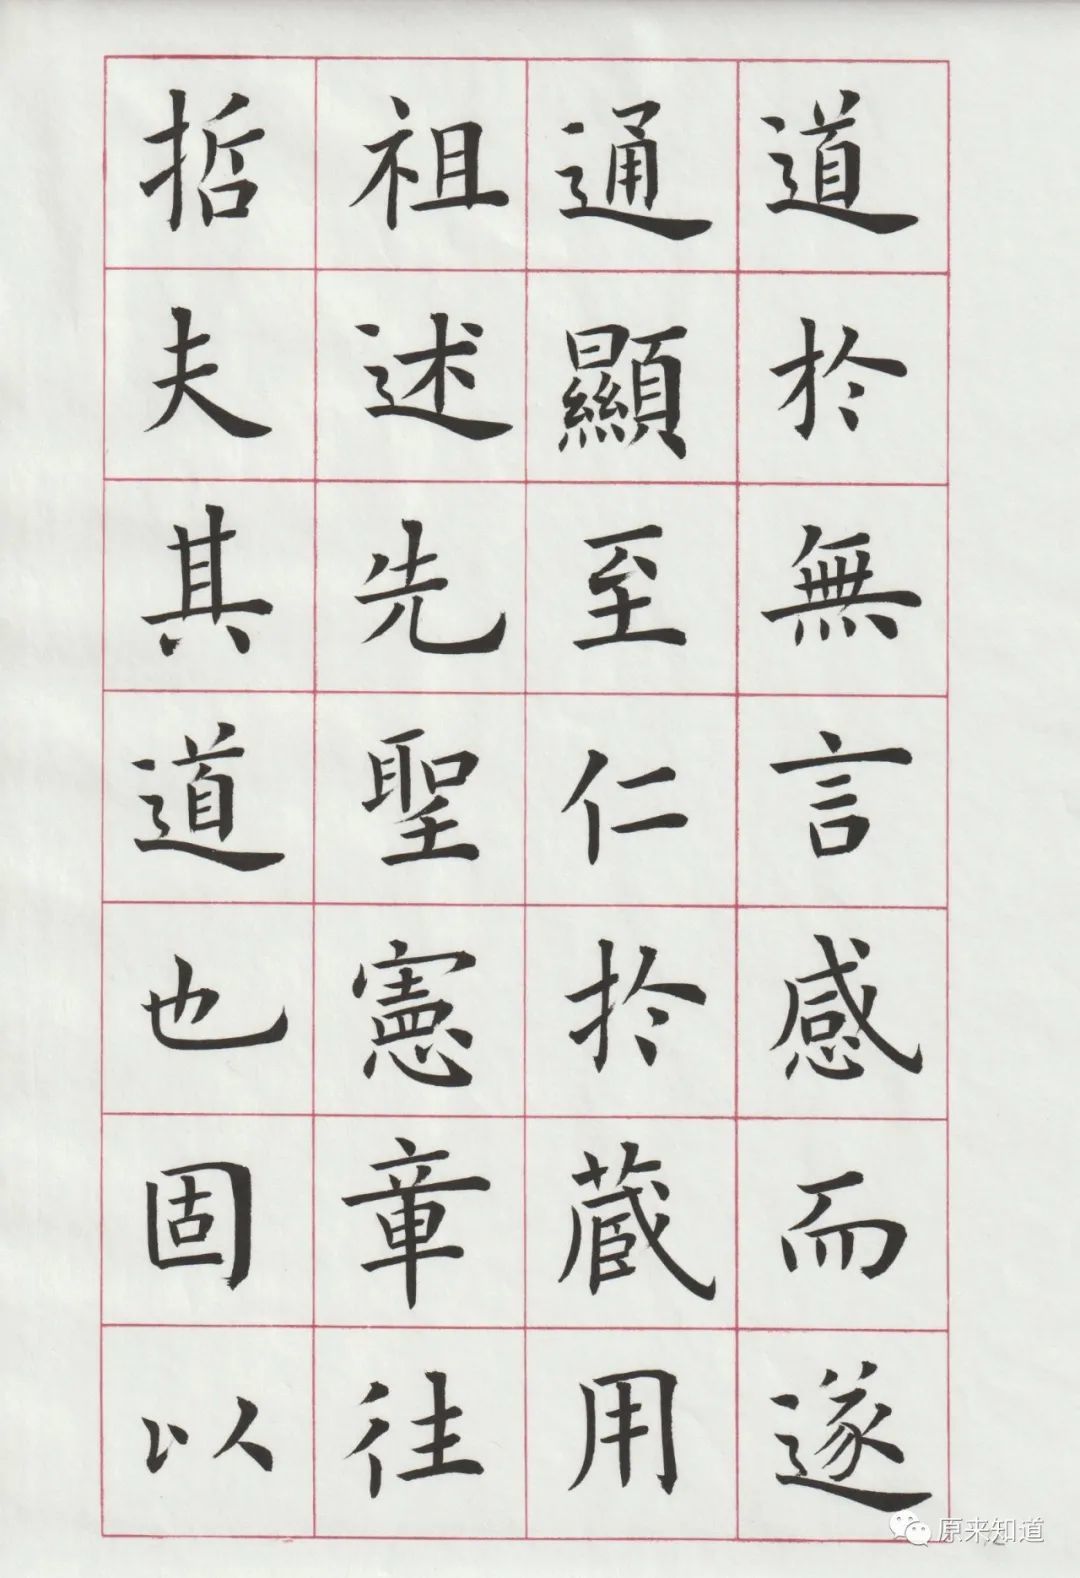 道於無言感而遂
通顯至仁於藏用
祖述先聖憲章往
哲夫其道也固以
原来知道